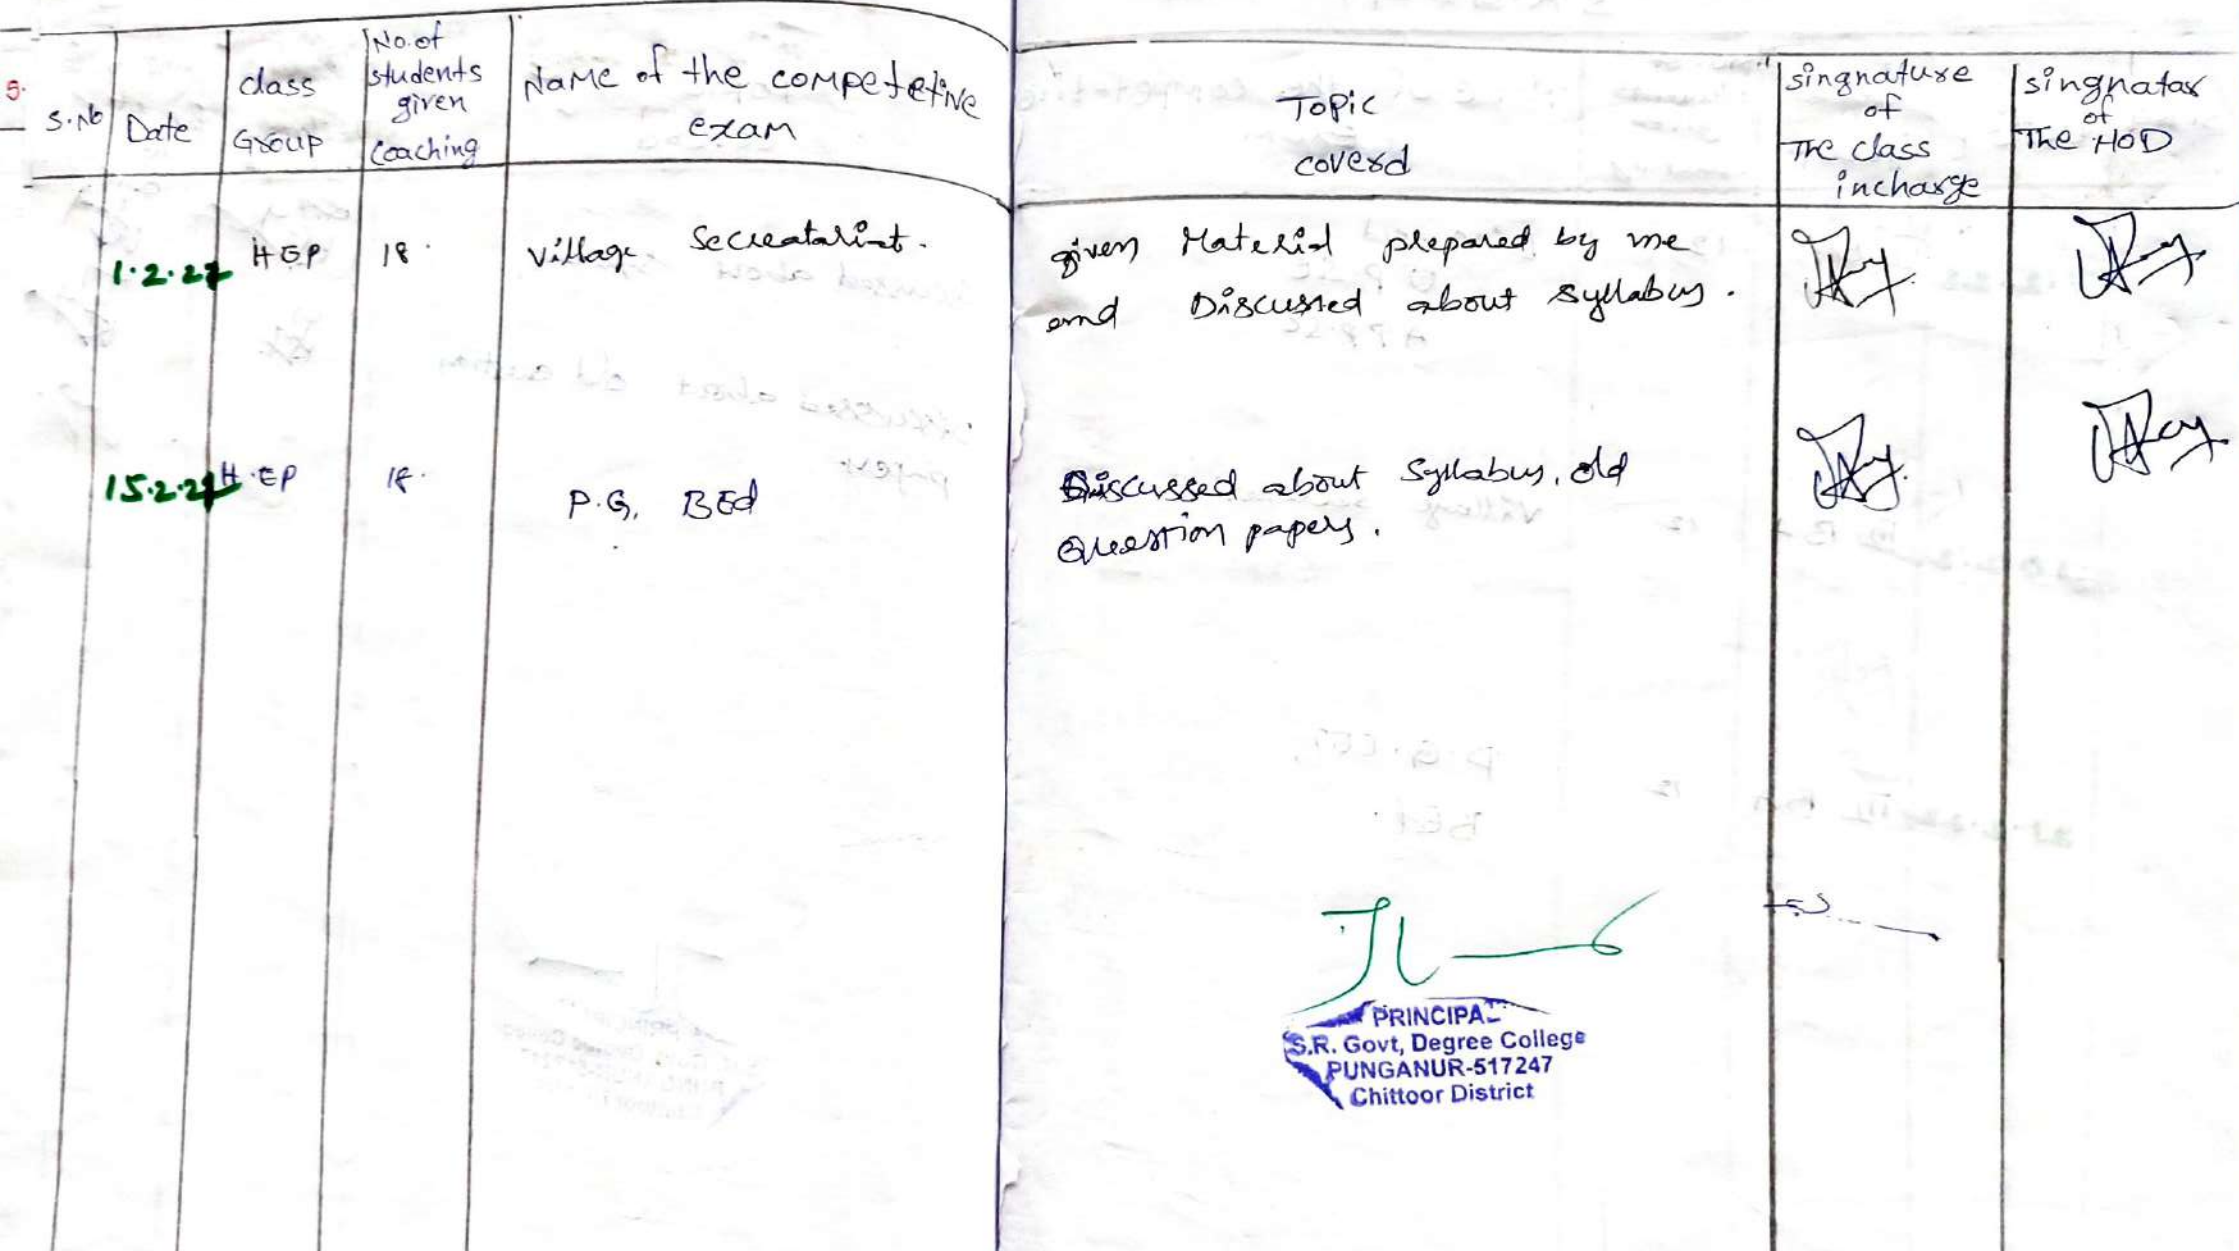 5.
S.No
Date
class
Group
No. of
students
given
coaching
Name of the competetive
exam
Topic
coverd
singnature
of
The class
incharge
singnatar
of
The HOD
HEP 18. Village Secreatariat.
given Material prepared by me
and Discussed about syllabus.
H.EP 18. P.G, BEd
Discussed about Syllabus, old
Question papers.
PRINCIPAL
S.R. Govt, Degree College
PUNGANUR-517247
Chittoor District